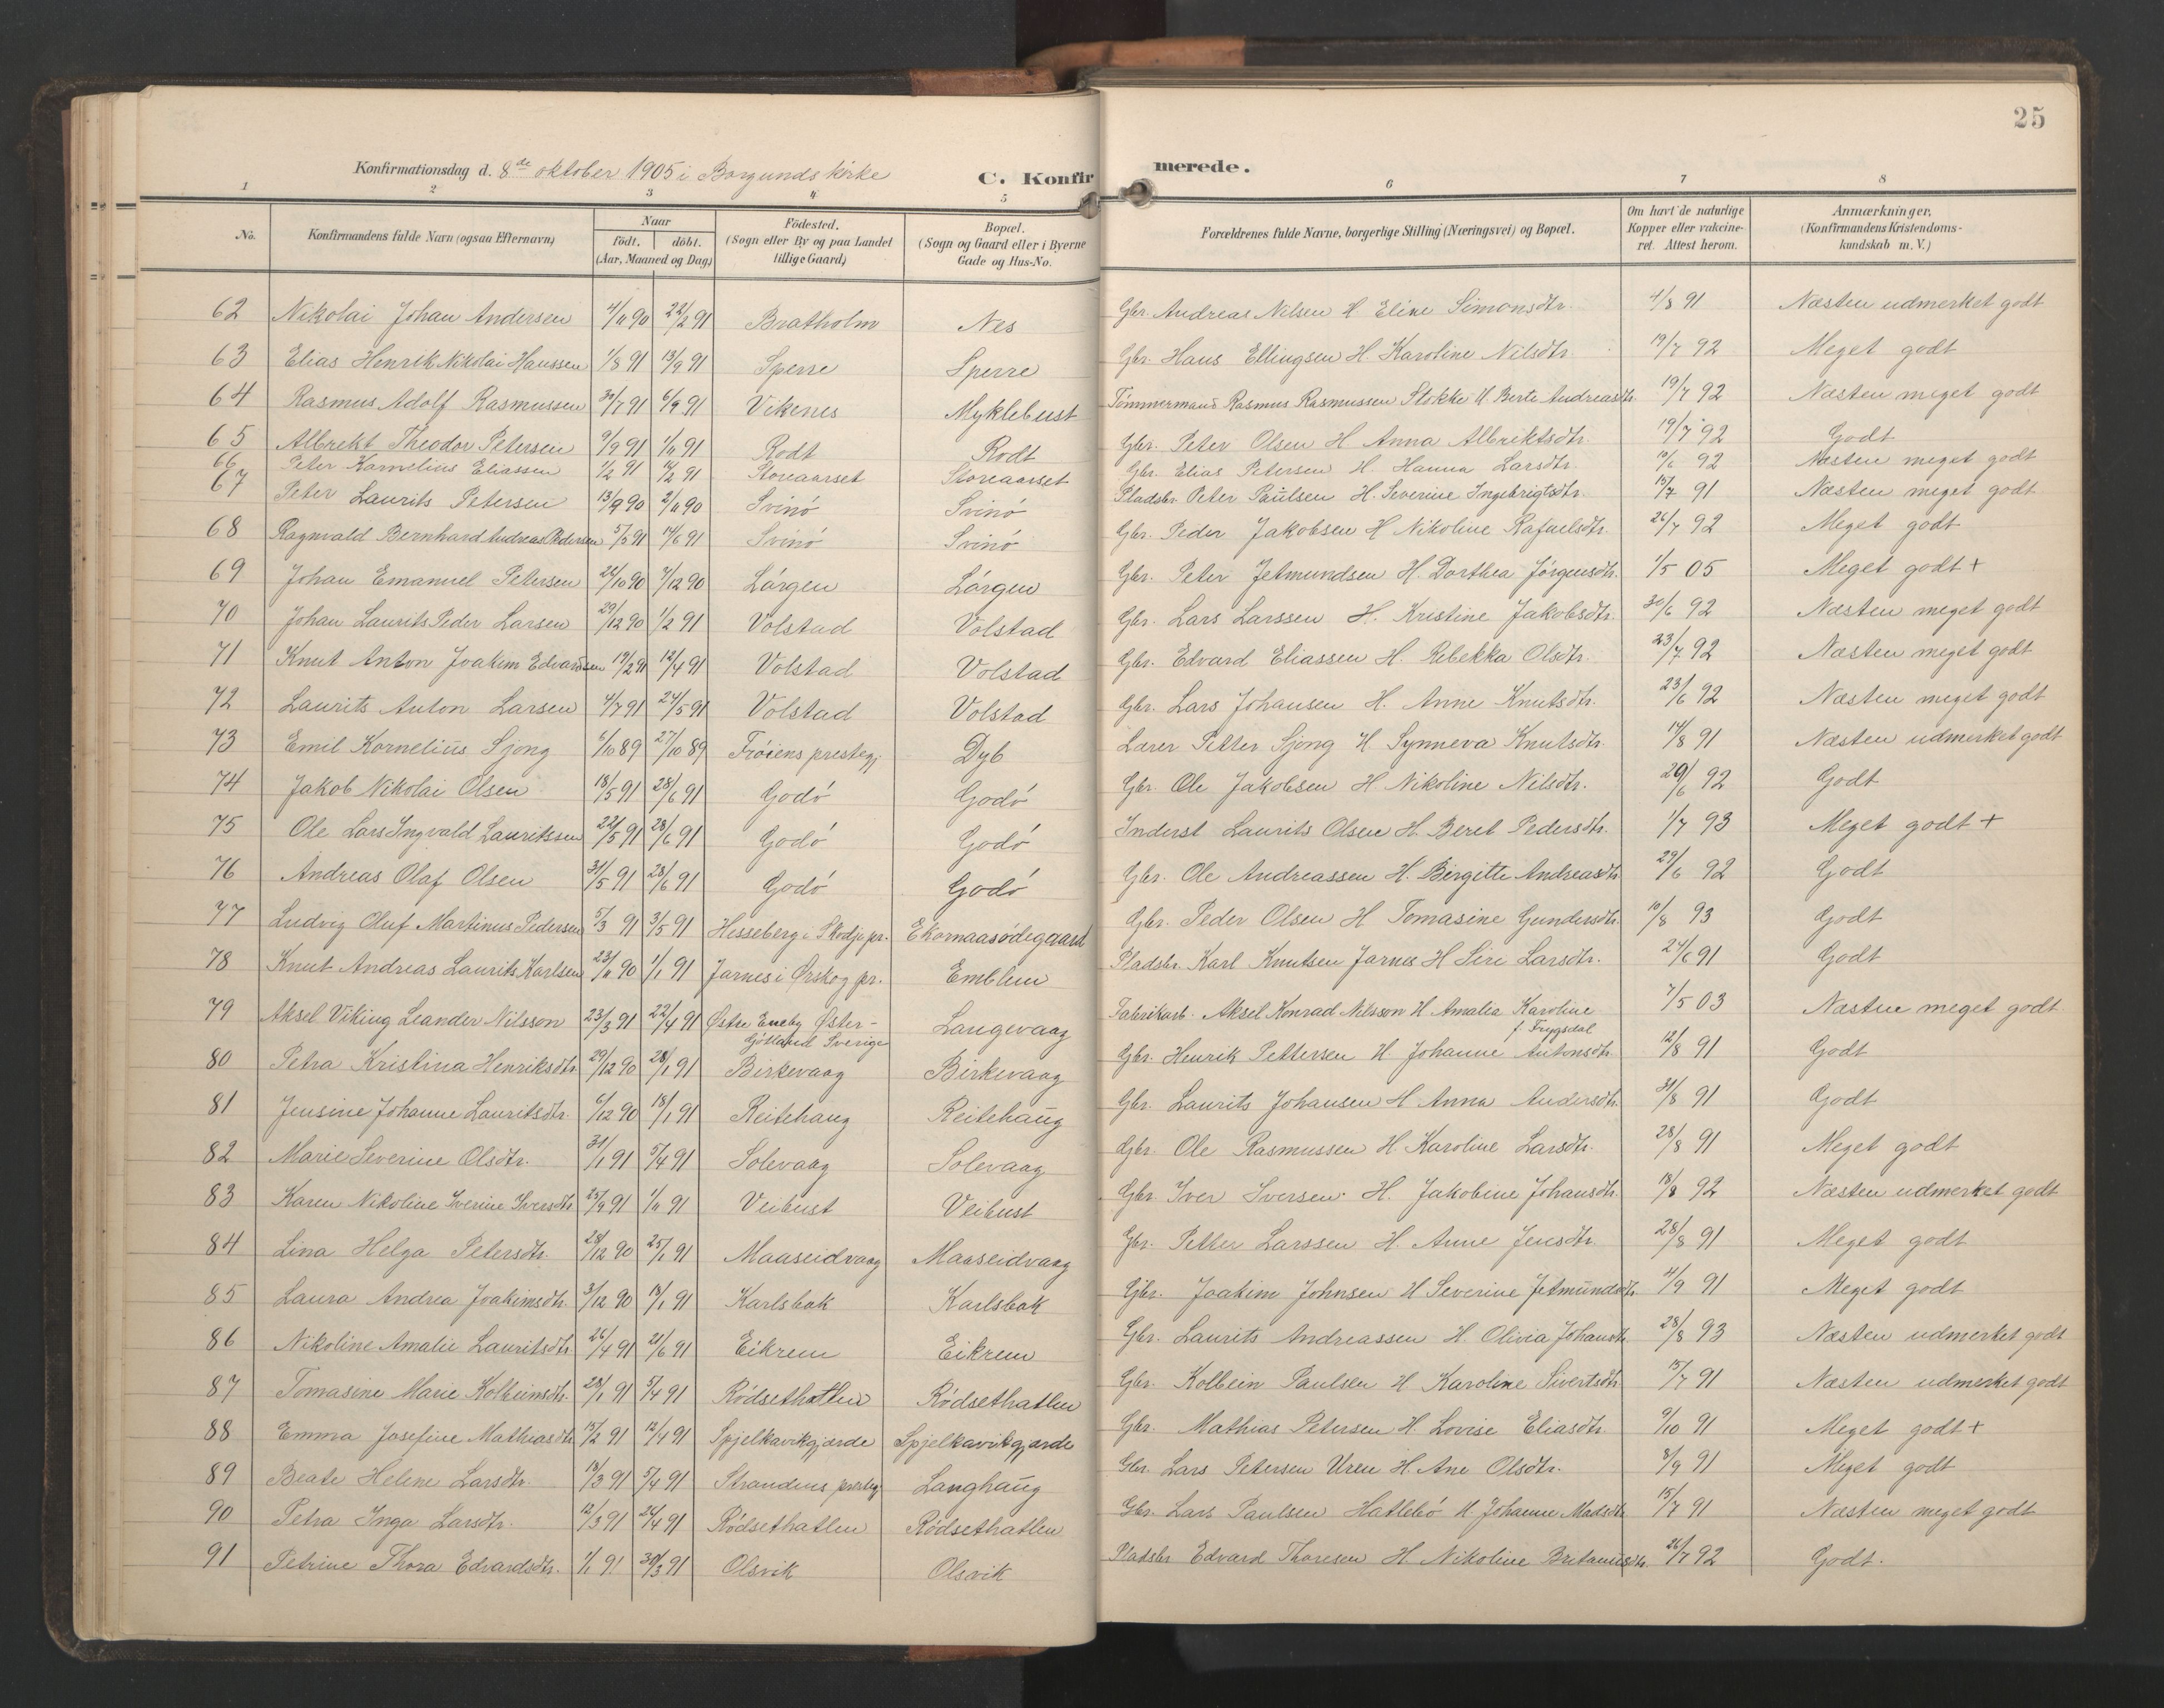 25
Konfirmationsdag d. 8de oktober 1905 i Borgunds kirke
C. Konfirmerede.
1 2 3 4 5 6 7 8
No. | Konfirmandens fulde Navn (ogsaa Efternavn) | Naar födt. | döbt. (Aar, Maaned og Dag) | Födested. (Sogn eller By og paa Landet tillige Gaard) | Bopæl. (Sogn og Gaard eller i Byerne Gade og Hus-No. | Forældrenes fulde Navne, borgerlige Stilling (Næringsvei) og Bopæl. | Om havt de naturlige Kopper eller vakcineret. Attest herom. | Anmærkninger, (Konfirmandens Kristendomskundskab m. V.)
62 Nikolai Johan Andersen 4/11 90 22/2 91 Bratholm Nes Gbr. Andreas Nilsen H Eline Simonsdtr. 4/8 91 Næsten udmerket godt
63 Elias Henrik Nikolai Hanssen 1/8 91 13/9 91 Sperre Sperre Gbr. Hans Ellingsen H. Karoline Nilsdtr. 19/7 92 Meget godt
64 Rasmus Adolf Rasmussen 30/7 91 6/9 91 Vikenes Myklebust Tömmermand Rasmus Rasmussen Stokke H. Berte Andreasdtr. 19/7 92 Næsten meget godt
65 Albrekt Theodor Petersen 9/9 91 1/11 91 Rodt Rodt Gbr. Peter Olsen H Anna Albriktsdtr. 19/7 92 Godt
66 Peter Kornelius Eliassen 1/2 91 91 Storeaarset Storeaarset Gbr. Elias Petersen H. Hanna Larsdtr. 10/6 92 Næsten meget godt
67 Peter Laurits Petersen 13/9 90 2/11 90 Svinö Svinö Pladsbr. Peter Paulsen H. Severine Ingebrigtsdtr. 15/7 91 Næsten meget godt
68 Ragnvald Bernhard Andreas Pedersen 5/5 91 14/6 91 Svinö Svinö Gbr. Peder Jakobsen H Nikoline Rafaelsdtr. 26/7 92 Meget godt
69 Johan Emanuel Petersen 24/10 90 7/12 90 Lörgen Lörgen Gbr. Peter Jetmundsen H. Dorthea Jörgensdtr. 1/5 05 Meget godt +
70 Johan Laurits Peder Larsen 29/12 90 1/2 91 Volstad Volstad Gbr. Lars Larssen H. Kristine Jakobsdtr. 30/6 92 Næsten meget godt
71 Knut Anton Joakim Edvardsen 19/2 91 12/4 91 Volstad Volstad Gbr. Edvard Eliassen H. Rebekka Olsdtr. 23/7 92 Næsten meget godt
72 Laurits Anton Larsen 4/7 91 24/5 91 Volstad Volstad Gbr. Lars Johansen H. Anne Knutsdtr. 23/6 92 Næsten meget godt
73 Emil Kornelius Sjong 6/10 89 27/10 89 Fröiens prestegj. Dyb Lærer Petter Sjong H Synneva Knutsdtr. 14/8 91 Næsten udmerket godt
74 Jakob Nikolai Olsen 18/5 91 28/6 91 Godö Godö Gbr. Ole Jakobsen H Nikoline Nilsdtr. 29/6 92 Godt
75 Ole Lars Ingvald Lauritssen 22/5 91 28/6 91 Godö Godö Inderst Laurits Olsen H. Beret Pedersdtr. 1/7 93 Meget godt +
76 Andreas Olaf Olsen 31/5 91 28/6 91 Godö Godö Gbr. Ole Andreassen H. Birgitte Andreasdtr 29/6 92 Godt
77 Ludvig Oluf Martinus Pedersen 5/3 91 3/5 91 Hesseberg i Skodje pr. Ekornaasödegaard Gbr. Peder Olsen H Tomasine Gundersdtr. 10/8 93 Godt
78 Knut Andreas Laurits Karlsen 23/11 90 1/1 91 Jarnes i Ørskog pr. Emblem Pladsbr. Karl Knutsen Jarnes H Siri Larsdtr. 24/6 91 Godt
79 Aksel Viking Leander Nilsson 23/3 91 22/4 91 Østre Eneby Øster-Götland Sverige Langevaag Fabrikarb. Aksel Konrad Nilsson H Amalia Karoline f. Frygsdal 7/5 03 Næsten meget godt
80 Petra Kristina Henriksdtr 29/12 90 28/1 91 Birkevaag Birkevaag Gbr. Henrik Pettersen H. Johanne Antonsdtr. 12/8 91 Godt
81 Jensine Johanne Lauritsdtr. 6/12 90 18/1 91 Reitehaug Reitehaug Gbr. Laurits Johansen H Anna Andersdtr. 31/8 91 Godt
82 Marie Severine Olsdtr. 31/1 91 5/4 91 Solevaag Solevaag Gbr. Ole Rasmussen H. Karoline Larsdtr. 28/8 91 Meget godt
83 Karen Nikoline Iverine Iversdtr 25/9 91 1/11 91 Veibust Veibust Gbr. Iver Iversen H. Jakobine Johansdtr. 18/8 92 Næsten udmerket godt
84 Lina Helga Petersdtr. 28/12 90 25/1 91 Maaseidvaag Maaseidvaag Gbr. Petter Larssen H Anne Jensdtr. 28/8 91 Meget godt
85 Laura Andrea Joakimsdtr. 3/12 90 18/1 91 Karlsbak Karlsbak Gbr. Joakim Johnsen H Severine Jetmundsdtr. 4/9 91 Meget godt
86 Nikoline Amalie Lauritsdtr 26/4 91 21/6 91 Eikrem Eikrem Gbr. Laurits Andreassen H. Olivia Johansdtr 28/8 93 Næsten udmerket godt
87 Tomasine Marie Kolbeinsdtr. 28/1 91 5/4 91 Rödsethatlen Rödsethatlen Gbr. Kolbein Paulsen H Karoline Sivertsdtr. 15/7 91 Næsten udmerket godt
88 Emma Josefine Mathiasdtr 15/2 91 12/4 91 Spjelkavikgjærde Spjelkavikgjærde Gbr. Mathias Petersen H. Lovise Eliasdtr. 9/10 91 Meget godt +
89 Beate Helene Larsdtr. 18/3 91 5/4 91 Strandens prestegj Langhaug Gbr. Lars Petersen Uren H. Ane Olsdtr. 8/9 91 Meget godt
90 Petra Inga Larsdtr. 12/3 91 26/4 91 Rödsethatlen Rödsethatlen Gbr. Lars Paulsen Hatlebö H Johanne Madsdtr 15/7 91 Næsten meget godt
91 Petrine Thora Edvardsdtr. 1/1 91 30/3 91 Olsvik Olsvik Pladsbr Edvard Thoresen H. Nikoline Britaniusdtr. 26/7 92 Godt.